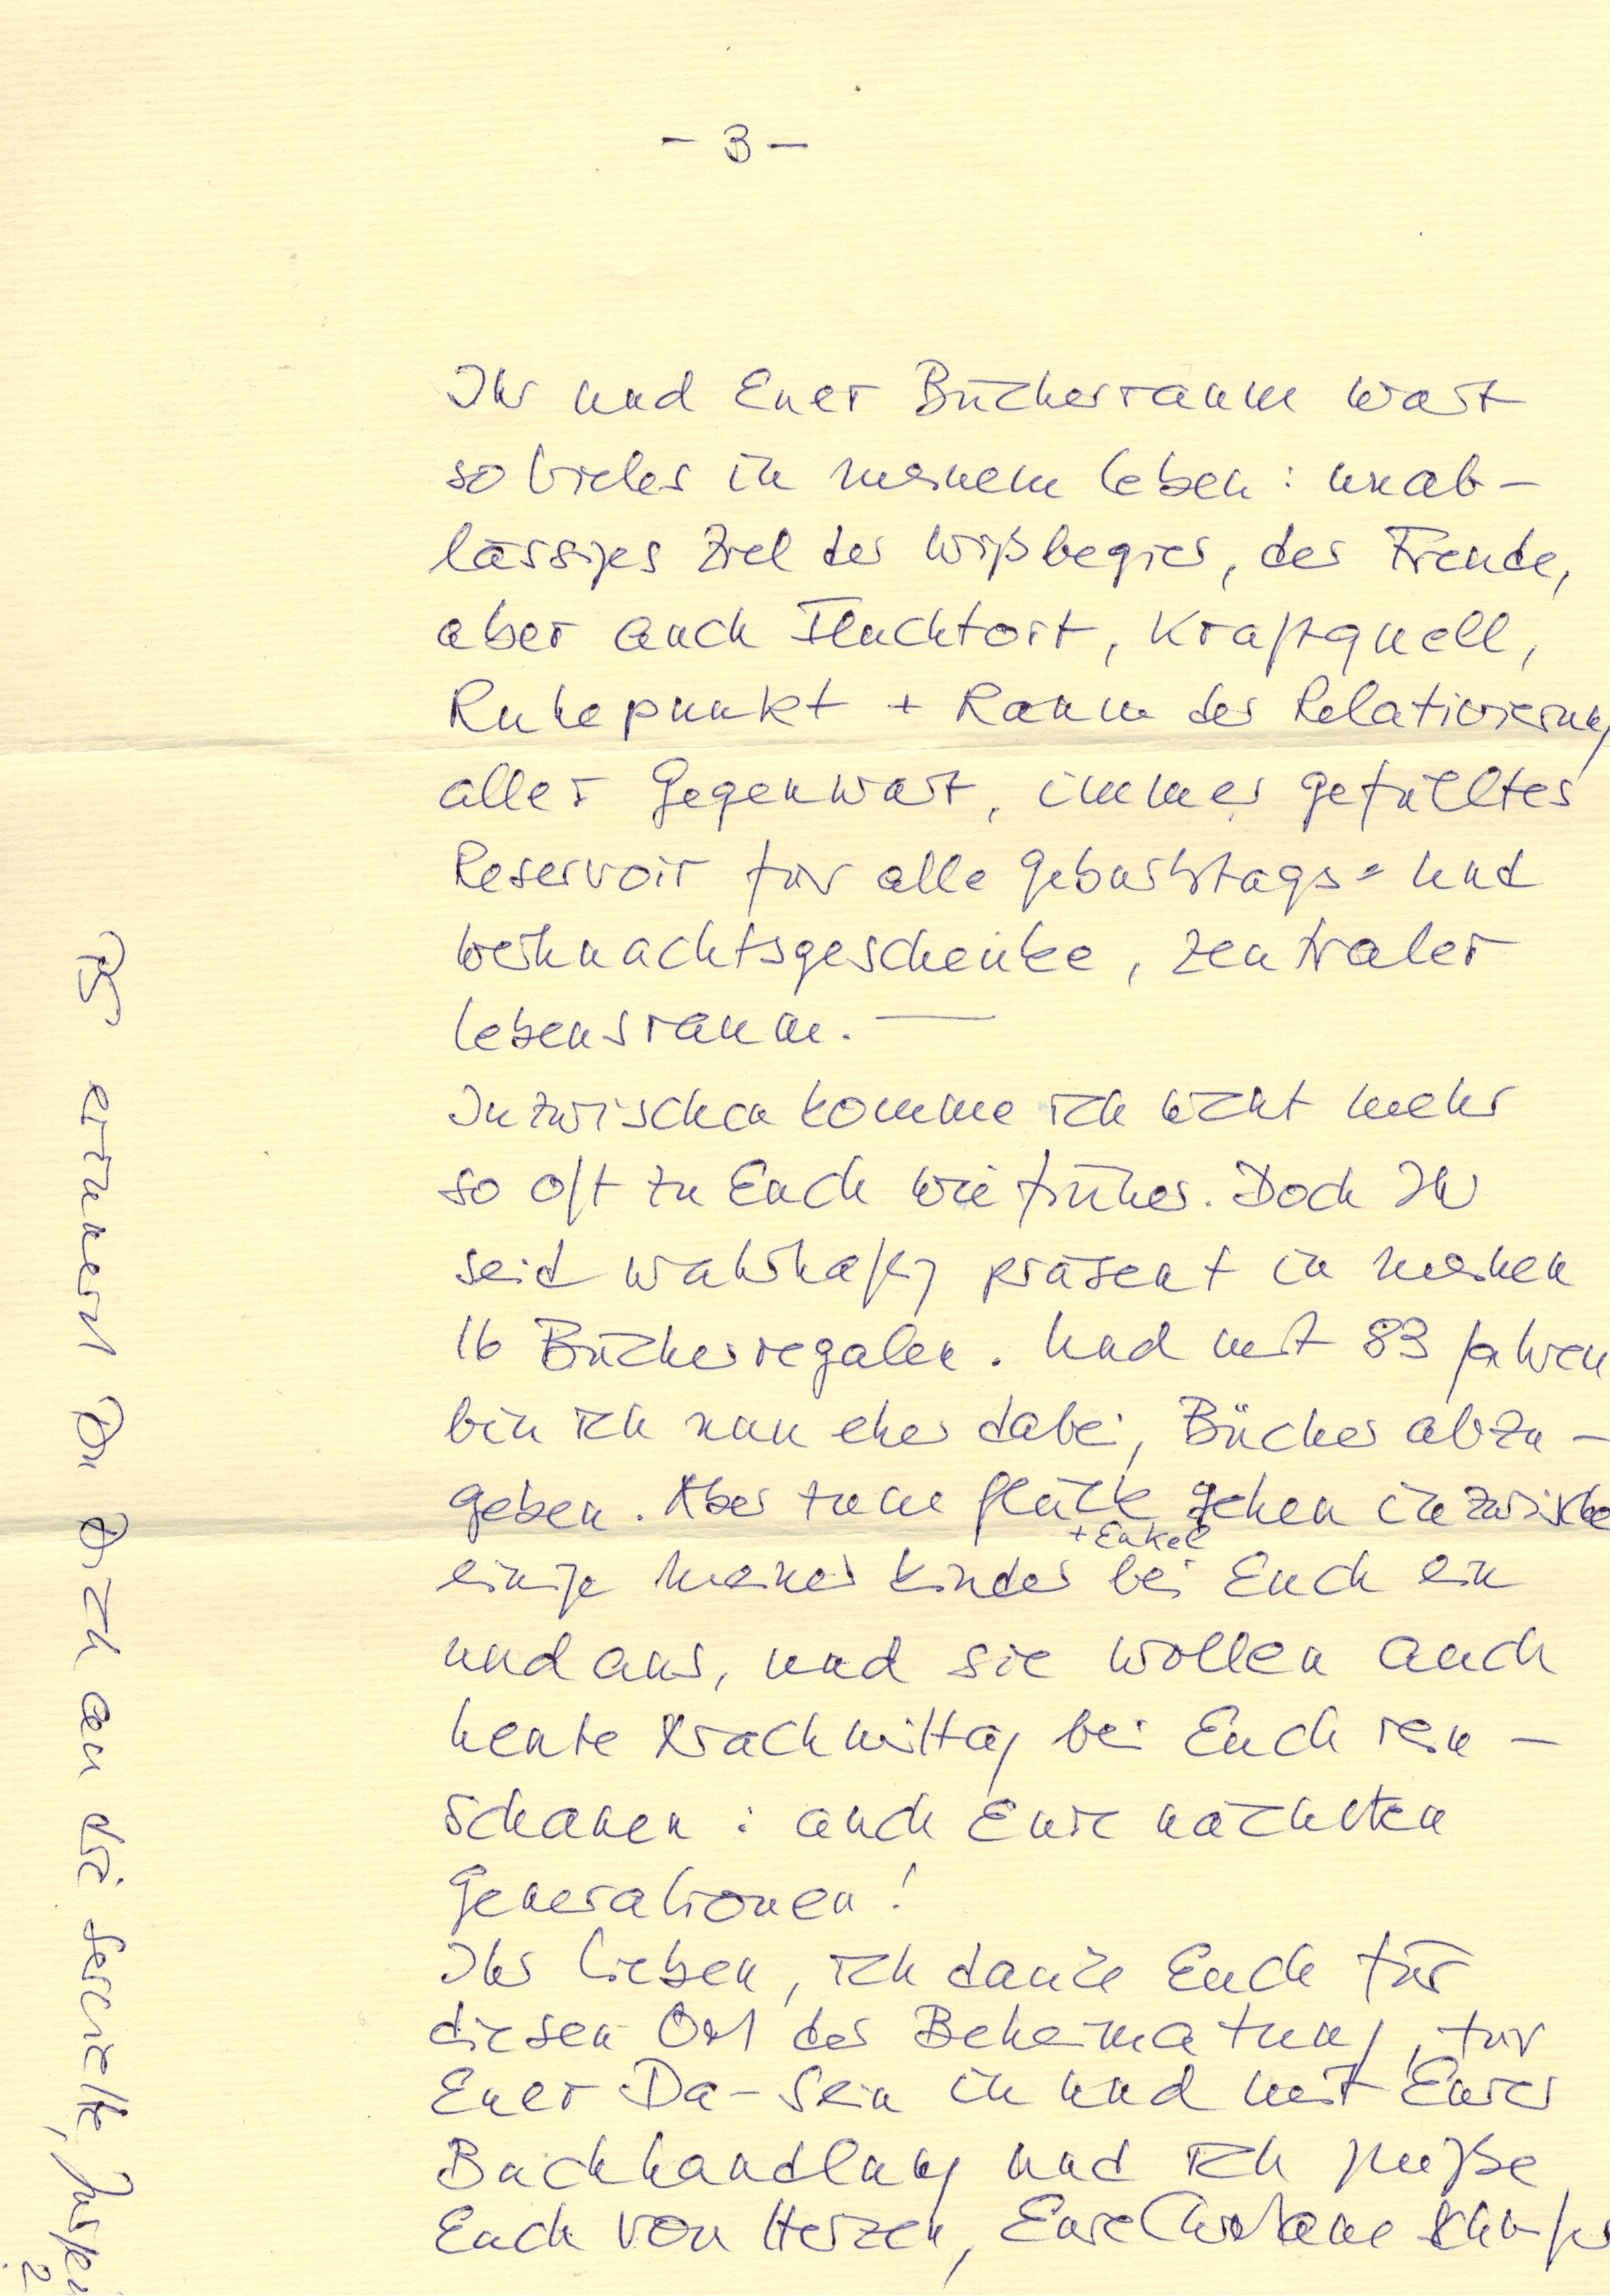 - 3 -
Ihr und Euer Bücherraum wart
so vieles in meinem Leben : unab-
lässiges Ziel der Wißbegier, der Freude,
aber auch Fluchtort, Kraftquell,
Ruhepunkt + Raum der Relativierung
aller Gegenwart, immer gefülltes
Reservoir für alle Geburtstags- und
Weihnachtsgeschenke, zentraler
Lebensraum. —
Inzwischen komme ich nicht mehr
so oft zu Euch wie früher. Doch Ihr
seid wahrhaftig präsent in meinen
16 Bücherregalen. Und mit 83 Jahren
bin ich nun eher dabei, Bücher abzu-
geben. Aber zum Glück gehen inzwische
+ Enkel
einige meiner Kinder bei Euch ein
und aus, und sie wollen auch
heute Nachmittag bei Euch rein-
schauen : auch Eure nächsten
Generationen!
Ihr Lieben, ich danke Euch für
diesen Ort der Beheimatung, für
Euer Da-Sein in und mit Eurer
Buchhandlung und ich grüße
Euch von Herzen, Eure Christiane
PS erinnerst Du Dich an die